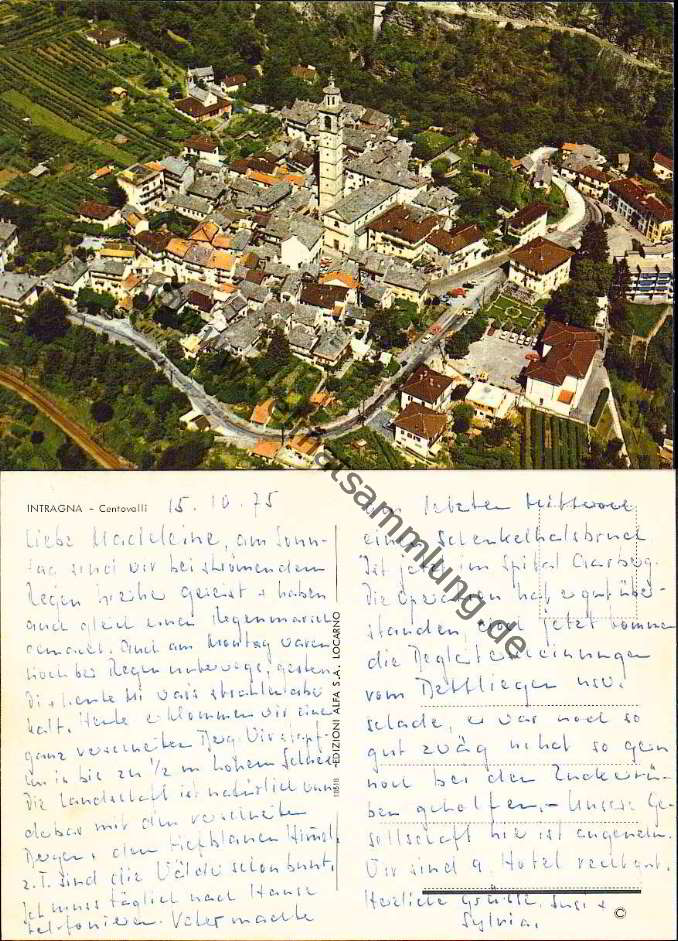 INTRAGNA - Centovalli
15. 10. 75
Liebe Madeleine, am Sonn-
tag sind wir bei strömendem
Regen hierhe gereist & haben
auch gleich einen Regenmarsch
gemacht. Auch am Montag waren
wir bei Regen unterwegs, gestern
Di & heute Mi war's strahlend
kalt. Heute erklommen wir einen
ganz verschneiten Berg. Wir stapf-
ten in bis zu 1/2 m hohem Schnee
Die Landschaft ist natürlich wun-
derbar mit den verschneiten
Bergen & dem tiefblauen Himmel.
z.T. sind die Wälder schon bunt.
Ich muss täglich nach Hause
telefonieren. Vater machte
am letzten Mittwoch
einen Schenkelhalsbruch
Ist jetzt im Spital
Die Operation hat er gut über-
standen, doch jetzt kommen
die Begleiterscheinungen
vom Bettliegen usw.
schade, er war noch so
gut zwäg und hat so gern
noch bei den Zuckerrü-
ben geholfen. - Unsere Ge-
sellschaft hier ist angenehm.
Wir sind 9, Hotel recht gut.
Herzliche Grüsse, Susi &
Sylvia.
EDIZIONI ALFA S.A. LOCARNO
©
heimatsammlung.de